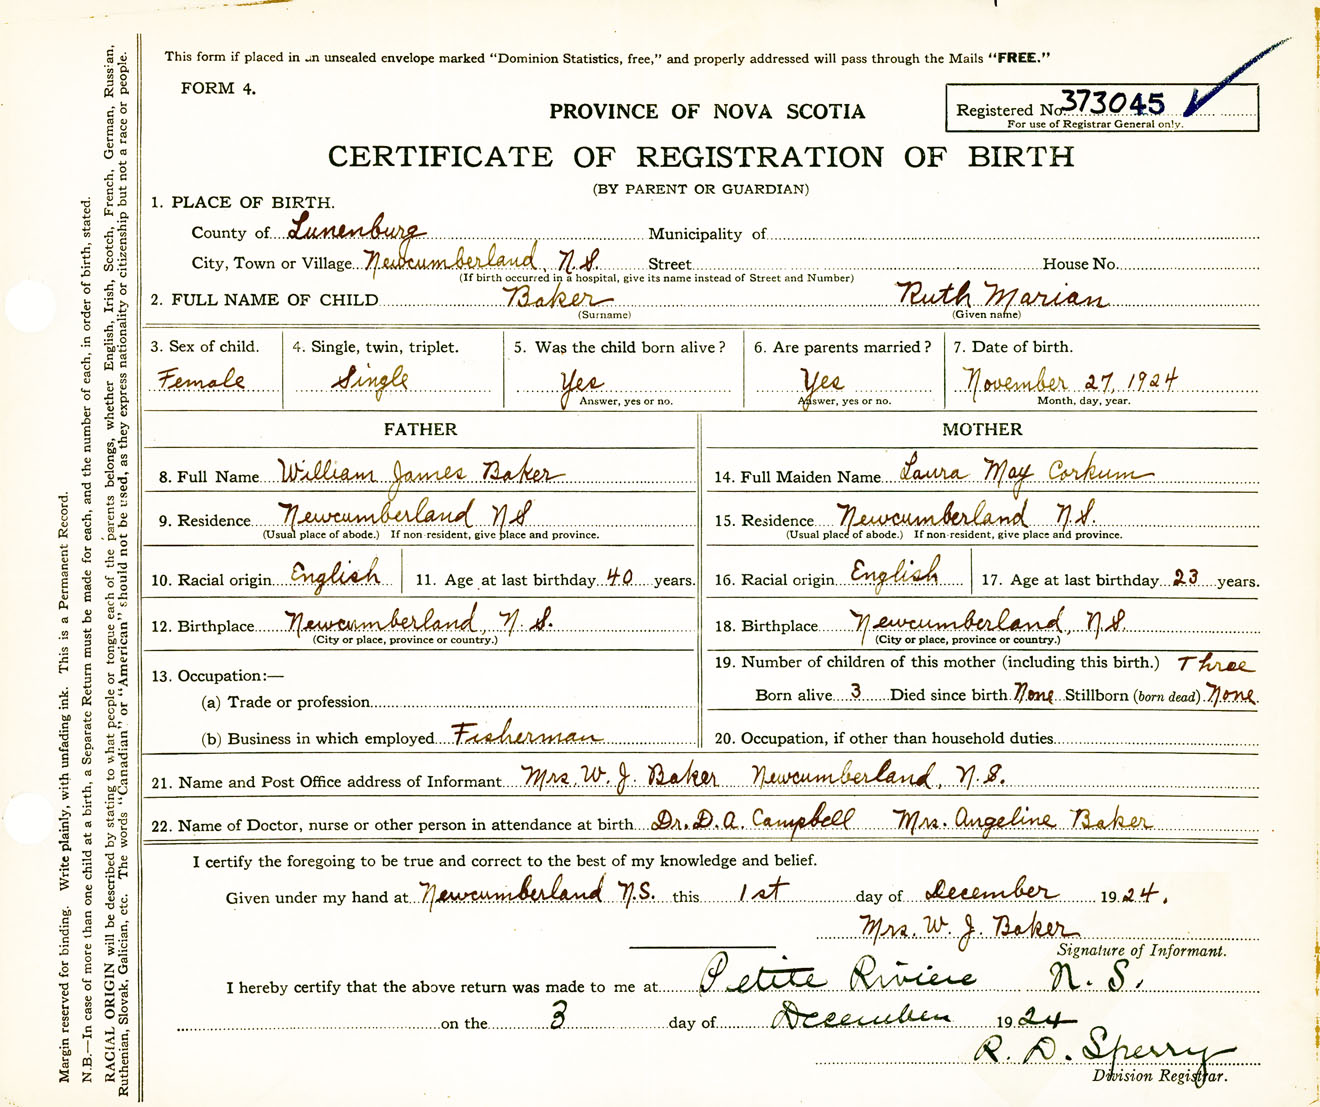 This form if placed in an unsealed envelope marked "Dominion Statistics, free," and properly addressed will pass through the Mails "FREE."
FORM 4.
Registered No. 373045
For use of Registrar General only.
PROVINCE OF NOVA SCOTIA
CERTIFICATE OF REGISTRATION OF BIRTH
(BY PARENT OR GUARDIAN)
1. PLACE OF BIRTH.
County of Lunenburg Municipality of
City, Town or Village Newcumberland, N.S. Street House No.
(If birth occurred in a hospital, give its name instead of Street and Number)
2. FULL NAME OF CHILD Baker Ruth Marian
(Surname) (Given name)
3. Sex of child. 4. Single, twin, triplet. 5. Was the child born alive? 6. Are parents married? 7. Date of birth.
Female Single Yes Yes November 27, 1924
Answer, yes or no. Answer, yes or no. Month, day, year.
FATHER MOTHER
8. Full Name William James Baker 14. Full Maiden Name Laura May Corkum
9. Residence Newcumberland NS 15. Residence Newcumberland N.S.
(Usual place of abode.) If non-resident, give place and province. (Usual place of abode.) If non-resident, give place and province.
10. Racial origin English 11. Age at last birthday 40 years. 16. Racial origin English 17. Age at last birthday 23 years.
12. Birthplace Newcumberland, N.S. 18. Birthplace Newcumberland, N.S.
(City or place, province or country.) (City or place, province or country.)
13. Occupation:— 19. Number of children of this mother (including this birth.) Three
(a) Trade or profession Born alive 3 Died since birth None Stillborn (born dead) None.
(b) Business in which employed Fisherman 20. Occupation, if other than household duties
21. Name and Post Office address of Informant Mrs. W. J. Baker Newcumberland, N.S.
22. Name of Doctor, nurse or other person in attendance at birth Dr. D.A. Campbell Mrs. Angeline Baker
I certify the foregoing to be true and correct to the best of my knowledge and belief.
Given under my hand at Newcumberland N.S. this 1st day of December 1924.
Mrs. W. J. Baker
Signature of Informant.
I hereby certify that the above return was made to me at Petite Riviere N. S.
on the 3 day of December 1924
R. D. Sperry
Division Registrar.
Margin reserved for binding. Write plainly, with unfading ink. This is a Permanent Record.
N.B.—In case of more than one child at a birth, a Separate Return must be made for each, and the number of each, in order of birth, stated.
RACIAL ORIGIN will be described by stating to what people or tongue each of the parents belongs, whether English, Irish, Scotch, French, German, Russian,
Ruthenian, Slovak, Galician, etc. The words "Canadian" or "American" should not be used, as they express nationality or citizenship but not a race or people.